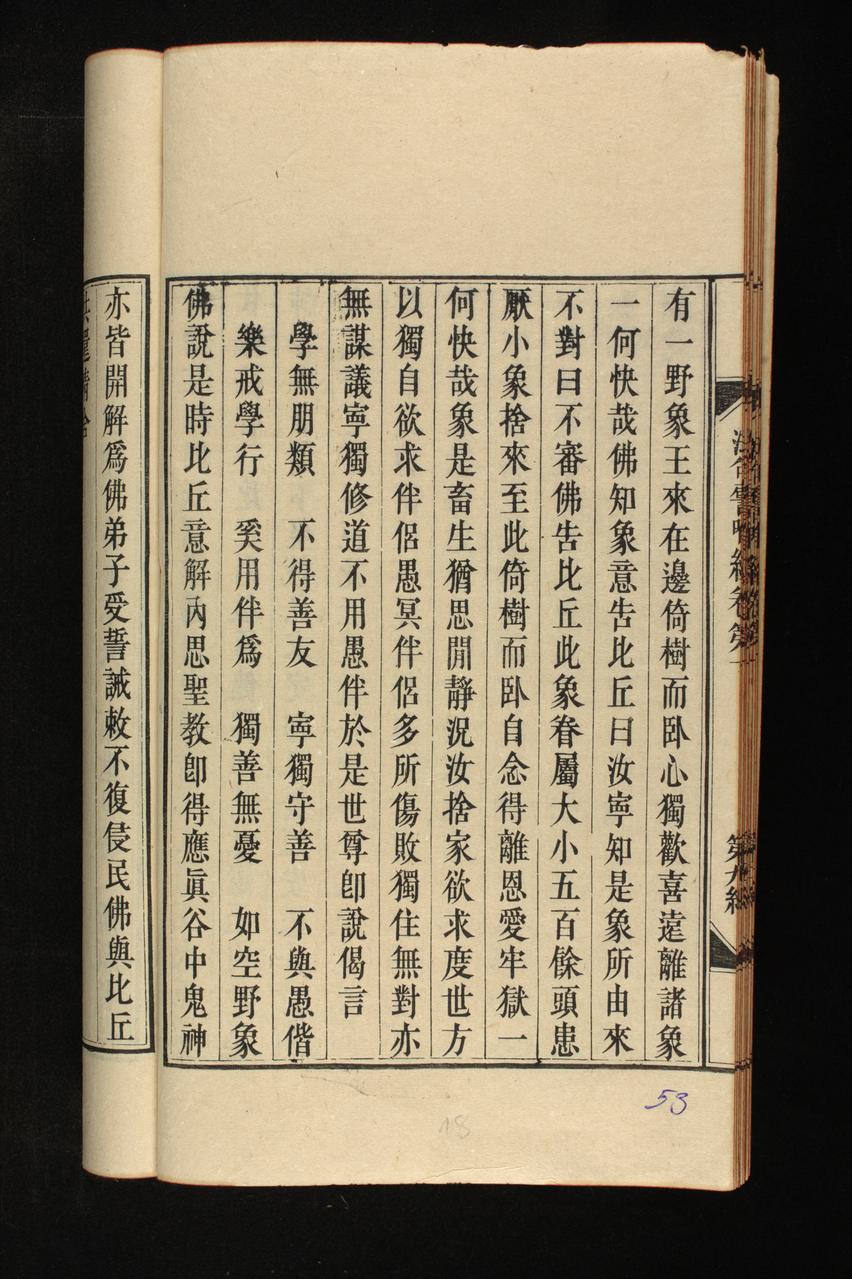 有一野象王來在邊倚樹而臥心獨歡喜遠離諸象
一何快哉佛知象意告比丘曰汝寧知是象所由來
不對曰不審佛告比丘此象眷屬大小五百餘頭患
厭小象捨來至此倚樹而臥自念得離恩愛牢獄一
何快哉象是畜生猶思閒靜況汝捨家欲求度世方
以獨自欲求伴侶愚冥伴侶多所傷敗獨住無對亦
無謀議寧獨修道不用愚伴於是世尊卽說偈言
學無朋類　不得善友　寧獨守善　不與愚偕
樂戒學行　奚用伴爲　獨善無憂　如空野象
佛說是時比丘意解內思聖教卽得應眞谷中鬼神
亦皆開解爲佛弟子受誓誡敕不復侵民佛與比丘
53
18